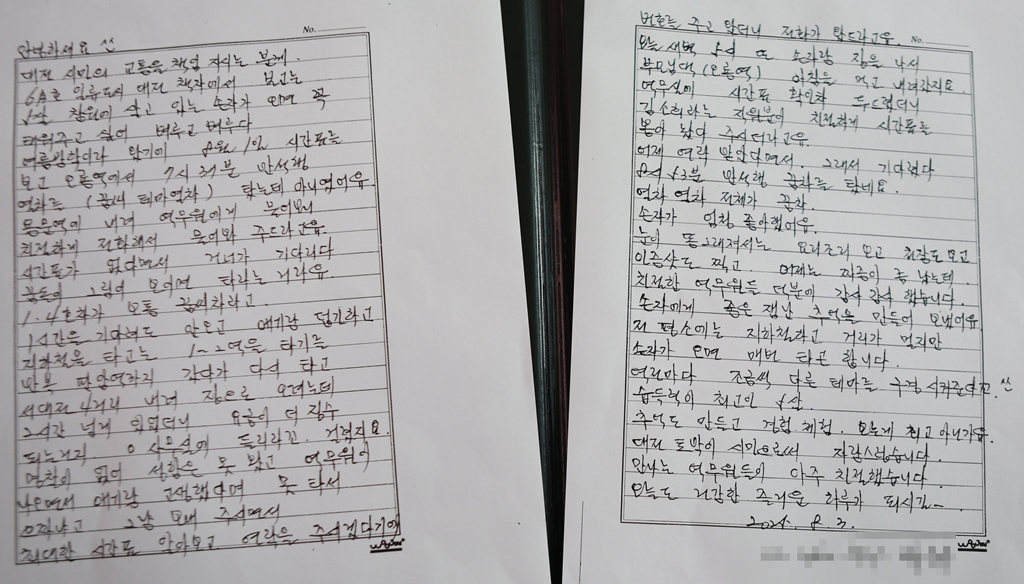 No.
안녕하세요 ^^
대전 시민의 교통을 책임 지시는 분께.
5살 창원에 살고 있는 손자가 오면 꼭
태워주고 싶어 벼루고 벼루다
여름방학이라 왔기에 8월 1일 시간표를
보고 오룡역에서 7시 35분 반석행
열차를 (꿈씨 테마열차) 탔는데 아니였어유
용문역에 내려 역무원에게 물어보니
친절하게 전화해서 물어봐 주드라고유.
시간표가 없다면서 거너가 기다리다
꿈돌이 그림이 보이면 타라는 거라유
1.4호차가 보통 꿈씨차라고.
1시간을 기다려도 안오고 애기랑 덥기하고
지하철을 타고는 1~2역을 타기를
반복 판암역까지 갔다가 다시 타고
서대전 4거리 내려 집으로 오려는데
2시간 넘게 있었더니 요금이 더 징수
되는거라 사무실에 들리라고. 걱정되요.
명찰이 없어 성함은 못 봤고 역무원이
나오면서 애기랑 고생했다며 못 타서
으짜냐고 그냥 보내 주시면서
최대한 시간표 알아보고 연락을 주시겠다기에
No.
번호를 주고 왔더니 전화가 왔드라고유.
오늘 새벽 5시 또 손자랑 집을 나서
부모님댁(오룡역) 아침을 먹고 내려갔지요.
역무실에 시간표 확인차 두드렸더니
김소희라는 직원분이 친절하게 시간표를
뽑아 놨어 주시더라고유.
어제 연락 받았다면서. 그래서 기다렸다
8시 53분 반석행 꿈차를 탔네요.
열차 열차 전체가 꿈차.
손자가 엄청 좋아했어유.
눈이 똥그래져서는 요리조리 보고 천장도 보고
인증샷도 찍고. 어제는 짜증이 좀 났는데
친절한 역무원들 덕분에 감사 감사 했습니다.
손자에게 좋은 잼난 추억을 만들어 보냈어유
저 평소에는 지하철하고 거리가 멀지만
손자가 오면 매번 타곤 합니다.
역마다 조금씩 다른 테마를 구경 시켜준다고 ^^
습득력이 최고인 5살
추억도 만들고 경험 체험. 오늘게 최고 아닌가유.
대전 토박이 시민으로써 자랑스럽습니다.
만나는 역무원들이 아주 친절했습니다.
오늘도 건강한 즐거운 하루가 되시길~
2024. 8. 3.